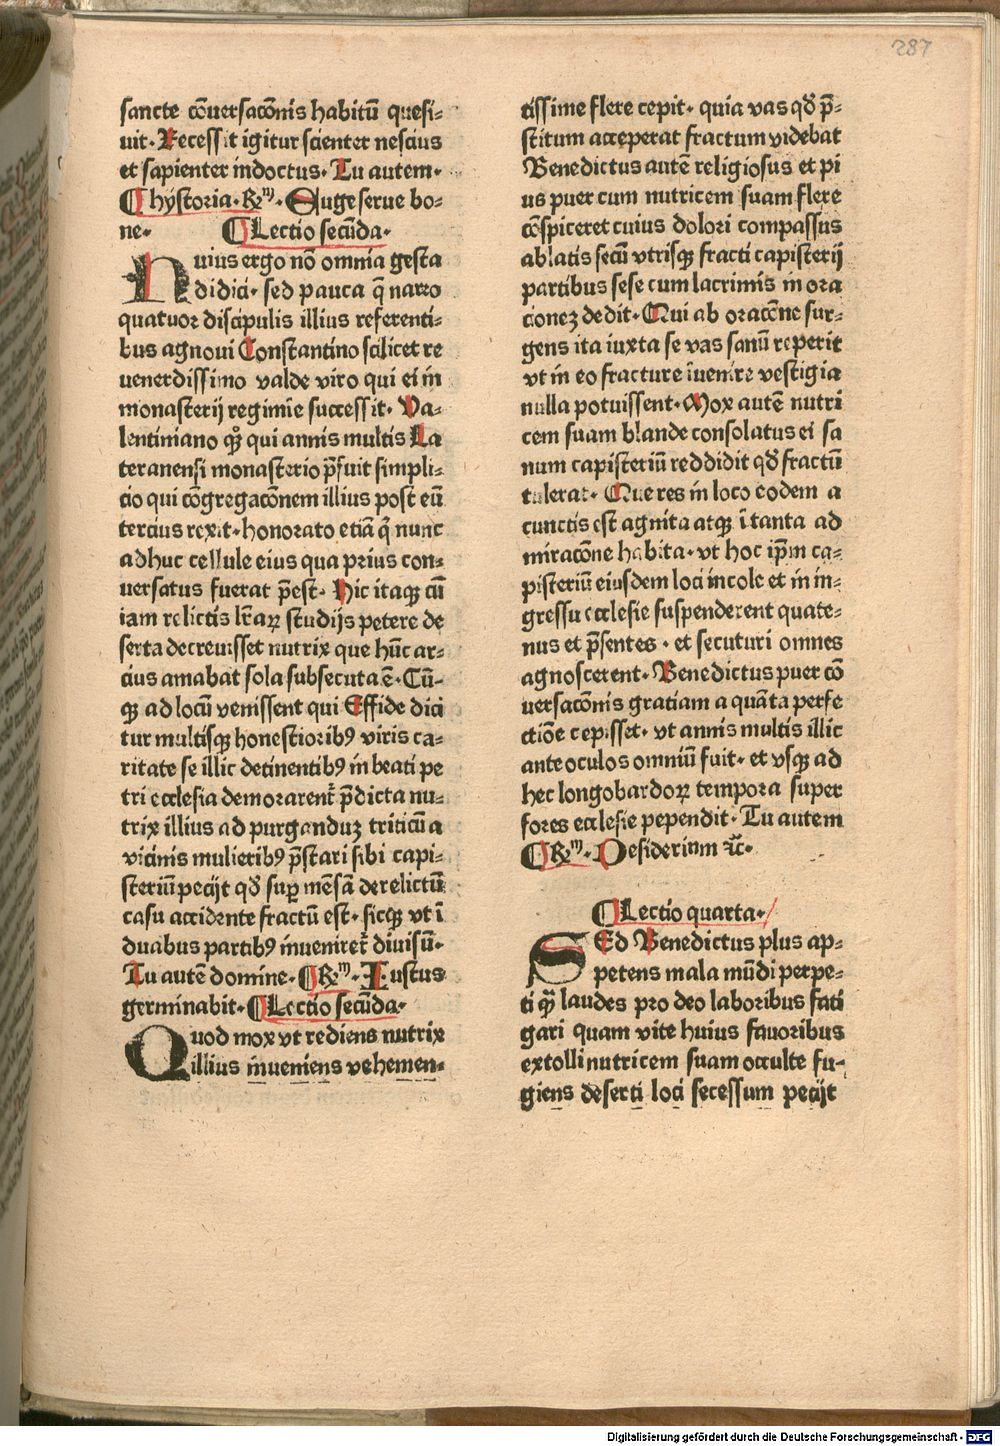 287
sancte cōuersacōnis habitū quesi⸗
uit· Recessit igitur scienter nescius
et sapienter indoctus· Tu autem·
¶ hystoria· Rm̄· Euge serue bo⸗
ne· ¶ Lectio secūda·
Huius ergo nō omnia gesta
didici· sed pauca q̄ narro
quatuor discipulis illius referenti⸗
bus agnoui Constantino scilicet re
uenerdissimo valde viro qui ei in
monasterij regimīe successit· Va⸗
lentiniano qꝫ qui annis multis La
teranensi monasterio p̄fuit simpli⸗
cio qui cōgregacōnem illius post eū
tercius rexit· honorato etiā q̄ nunc
adhuc cellule eius qua prius con⸗
uersatus fuerat p̄est· Hic itaqꝫ cū
iam relictis lr̄aꝝ studijs petere de
serta decreuisset nutrix que hūc ar⸗
cius amabat sola subsecuta ē· Cū⸗
qꝫ ad locū venissent qui Effide dici
tur multisqꝫ honestioribꝰ viris ca⸗
ritate se illic detinentibꝰ in beati pe
tri ecclesia demorarent̄ p̄dicta nu⸗
trix illius ad purganduꝫ triticū a
vicinis mulieribꝰ p̄stari sibi capi⸗
steriū pecijt qđ suꝑ mēsā derelictū
casu accidente fractū est· sicqꝫ vt ī
duabus partibꝰ inueniret̄ diuisū·
Tu autē domine· ¶ Rm̄· Iustus
germinabit· ¶ Lectio secūda·
Quod mox vt rediens nutrix
illius inueniens vehemen⸗
tissime flere cepit· quia vas qđ p̄⸗
stitum acceperat fractum videbat
Benedictus autē religiosus et pi
us puer cum nutricem suam flere
cōspiceret cuius dolori compassus
ablatis secū vtrisqꝫ fracti capisterij
partibus sese cum lacrimis in ora
cioneꝫ dedit· Qui ab oracōne sur⸗
gens ita iuxta se vas sanū reperit
vt in eo fracture īuenire vestigia
nulla potuissent· Mox autē nutri
cem suam blande consolatus ei sa
num capisteriū reddidit qđ fractū
tulerat· Que res in loco eodem a
cunctis est agnita atqꝫ ī tanta ad
miracōne habita· vt hoc ip̄m ca⸗
pisteriū eiusdem loci incole et in in⸗
gressu ecclesie suspenderent quate⸗
nus et p̄sentes · et secuturi omnes
agnoscerent· Benedictus puer cō
uersacōnis gratiam a quāta perfe
ctiōe cepisset· vt annis multis illic
ante oculos omniū fuit· et vsqꝫ ad
hec longobardoꝝ tempora super
fores ecclesie pependit· Tu autem
¶ Rm̄· Desiderium ⁊c̄·
¶ Lectio quarta·
SEd Benedictus plus ap⸗
petens mala mūdi perpe⸗
ti qꝫ laudes pro deo laboribus fati
gari quam vite huius fauoribus
extolli nutricem suam occulte fu⸗
giens deserti loci secessum pecijt
Digitalisierung gefördert durch die Deutsche Forschungsgemeinschaft - DFG